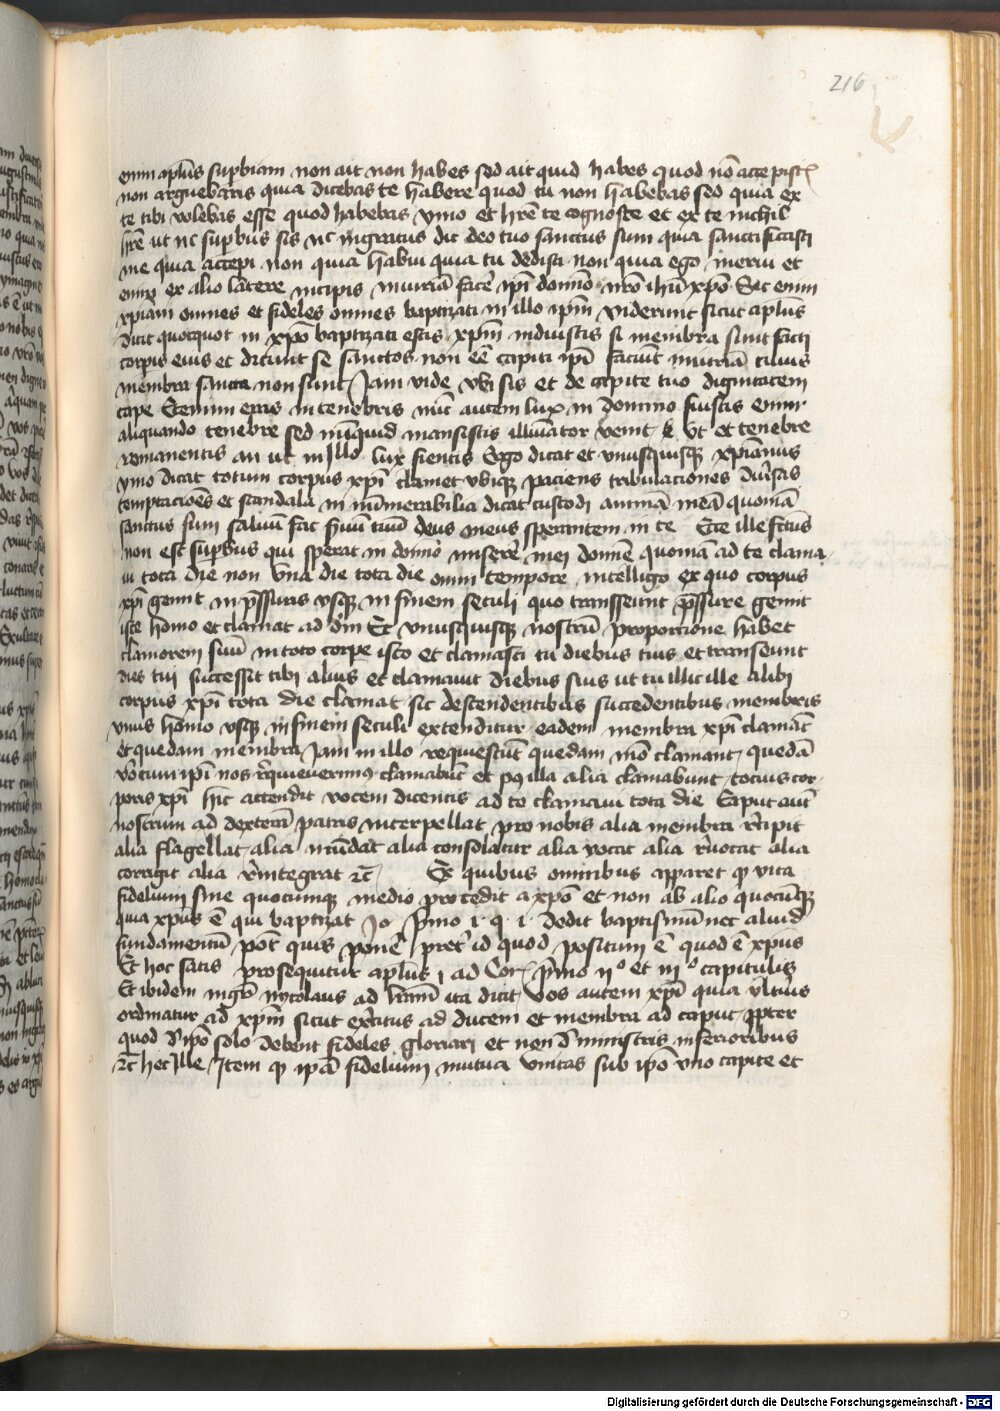 216
enim apl̄us sup̄biam non ait non habes sed ait quid habes quod nō accepisti
non arguebaris quia dicebas te habere quod tu non habebas sed quia ex
te tibi volebas esse quod habebas ymo et hr̄e te cognosce et ex te nichil
hr̄e ut nc̄ sup̄bus sis nc̄ ingratus dic deo tuo sanctus sum quia sanctificasti
me quia accepi non quia habui quia tu dedisti non quia ego merui et
enim ex alio latere incipis iniuriā face᷑ ip̄i domino nr̄o ih̄u xp̄o Sic enim
xpiani omnes et fideles omnes baptizati in illo ip̄m viderunt sicut apl̄us
dicit quotquot in xp̄o baptizati estis xp̄m induistis si membra sunt facti
corpis eius et dicunt se sanctos non eē capiti ip̄i faciūt iniuriā cuius
membra sancta non sunt Jam vide vbi sis et de capite tuo dignitatem
cape Etenim eratis in tenebris nūc autem lux in domino fuistis enim
aliquando tenebre sed nūquid mansistis illuīator venit ut et tenebre
remanentis an ut in Jllo lux fientis Ergo dicat et vnusquisqȝ xp̄ianus
ymo dicat totum corpus xp̄i clamet vbiqȝ paciens tribulationes diu᷑sas
temptacioēs et scandala in nūmerabilia dicat custodi animā meā quoniā
sanctus sum saluū fac s̄uū tuū deus meus sperantem in te Ecce ille sctūs
non est sup̄bus qui sperat in domio misere᷑ mei domīe quoniā ad te clama
ui tota die non vna die tota die omni tempore intelligo ex quo corpus
xp̄i gemit in p̄ssuris vsqȝ in finem seculi quo transseunt p̄ssure gemit
iste homo et clamat ad dm̄ Et vnusquisqȝ nostrū proporcione habet
clamorem suū in toto corpe isto et clamasti tu diebus tuis et transeunt
dies tui successit tibi alius et clamauit diebus suis ut tu illic ille alibi
corpus xp̄i tota die clamat sic descendentibus succedentibus membris
vnus homo vsqȝ in finem seculi extenditur eadem membra xp̄i clamāt
et quedam membra Jam in illo requiescūt quedam mō clamant quedā
nos r̄quieuerimꝯ clamabūt et pꝯ illa alia clamabunt tocius cor
poris xp̄i hic attendit vocem dicentis ad te clamaui tota die Caput aut̄
nostrum ad dexterā patris interpellat pro nobis alia membra r̄cipit
alia flagellat alia mūdat alia consolatur alia vocat alia r̄uocat alia
corrigit alia r̄integrat ⁊c̄ Ex quibus omnibus apparet ꝙ vita
fidelium sine quocumqȝ medio procedit a xp̄o et non ab alio quocūqȝ
quia xp̄us ē qui baptizat Jo p̄mo i· q· i· dedit baptismū nec aliud
fundamentū pōt quis ponē pret᷑ id quod positum ē quod ē xp̄us
Et hoc satis prosequitur apl̄us i ad Cor p̄mo ii° et iii° capitulis
Et ibidem mgr̄ nycolaus ad l̄ram ita dicit Vos autem xp̄i quia vltius
ordinatur ad xp̄m sicut exc̄itus ad ducem et membra ad caput ꝓpter
quod d᷑ ip̄o solo debent fideles gloriari et non d᷑ ministris inferioribus
⁊c̄ hec Jlle Jtem ꝙ ip̄ā fidelium mutua vnitas sub ip̄o vno capite et
Digitalisierung gefördert durch die Deutsche Forschungsgemeinschaft - DFG